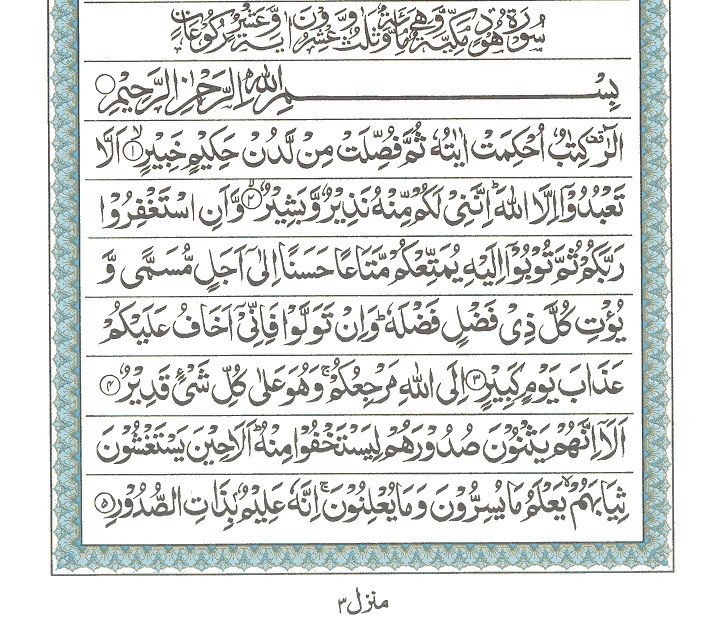 سُوْرَةُ هُوْدٍ مَكِّيَّةٌ وَّهِيَ مِائَةٌ وَّثَلٰثٌ وَّعِشْرُوْنَ اٰيَةً وَّعَشْرُ رُكُوْعَاتٍ
بِسْمِ اللّٰهِ الرَّحْمٰنِ الرَّحِيْمِ
الٓرٰ كِتٰبٌ اُحْكِمَتْ اٰيٰتُهٗ ثُمَّ فُصِّلَتْ مِنْ لَّدُنْ حَكِيْمٍ خَبِيْرٍ ۙ﴿۱﴾ اَلَّا
تَعْبُدُوْۤا اِلَّا اللّٰهَ ؕ اِنَّنِيْ لَكُمْ مِّنْهُ نَذِيْرٌ وَّ بَشِيْرٌ ۙ﴿۲﴾ وَّ اَنِ اسْتَغْفِرُوْا
رَبَّكُمْ ثُمَّ تُوْبُوْۤا اِلَيْهِ يُمَتِّعْكُمْ مَّتَاعًا حَسَنًا اِلٰۤى اَجَلٍ مُّسَمًّى وَّ
يُؤْتِ كُلَّ ذِيْ فَضْلٍ فَضْلَهٗ ؕ وَ اِنْ تَوَلَّوْا فَاِنِّيْۤ اَخَافُ عَلَيْكُمْ
عَذَابَ يَوْمٍ كَبِيْرٍ ﴿۳﴾ اِلَى اللّٰهِ مَرْجِعُكُمْ ۚ وَ هُوَ عَلٰى كُلِّ شَيْءٍ قَدِيْرٌ ﴿۴﴾
اَلَاۤ اِنَّهُمْ يَثْنُوْنَ صُدُوْرَهُمْ لِيَسْتَخْفُوْا مِنْهُ ؕ اَلَا حِيْنَ يَسْتَغْشُوْنَ
ثِيَابَهُمْ ۙ يَعْلَمُ مَا يُسِرُّوْنَ وَ مَا يُعْلِنُوْنَ ۚ اِنَّهٗ عَلِيْمٌۢ بِذَاتِ الصُّدُوْرِ ﴿۵﴾
منزل ۳